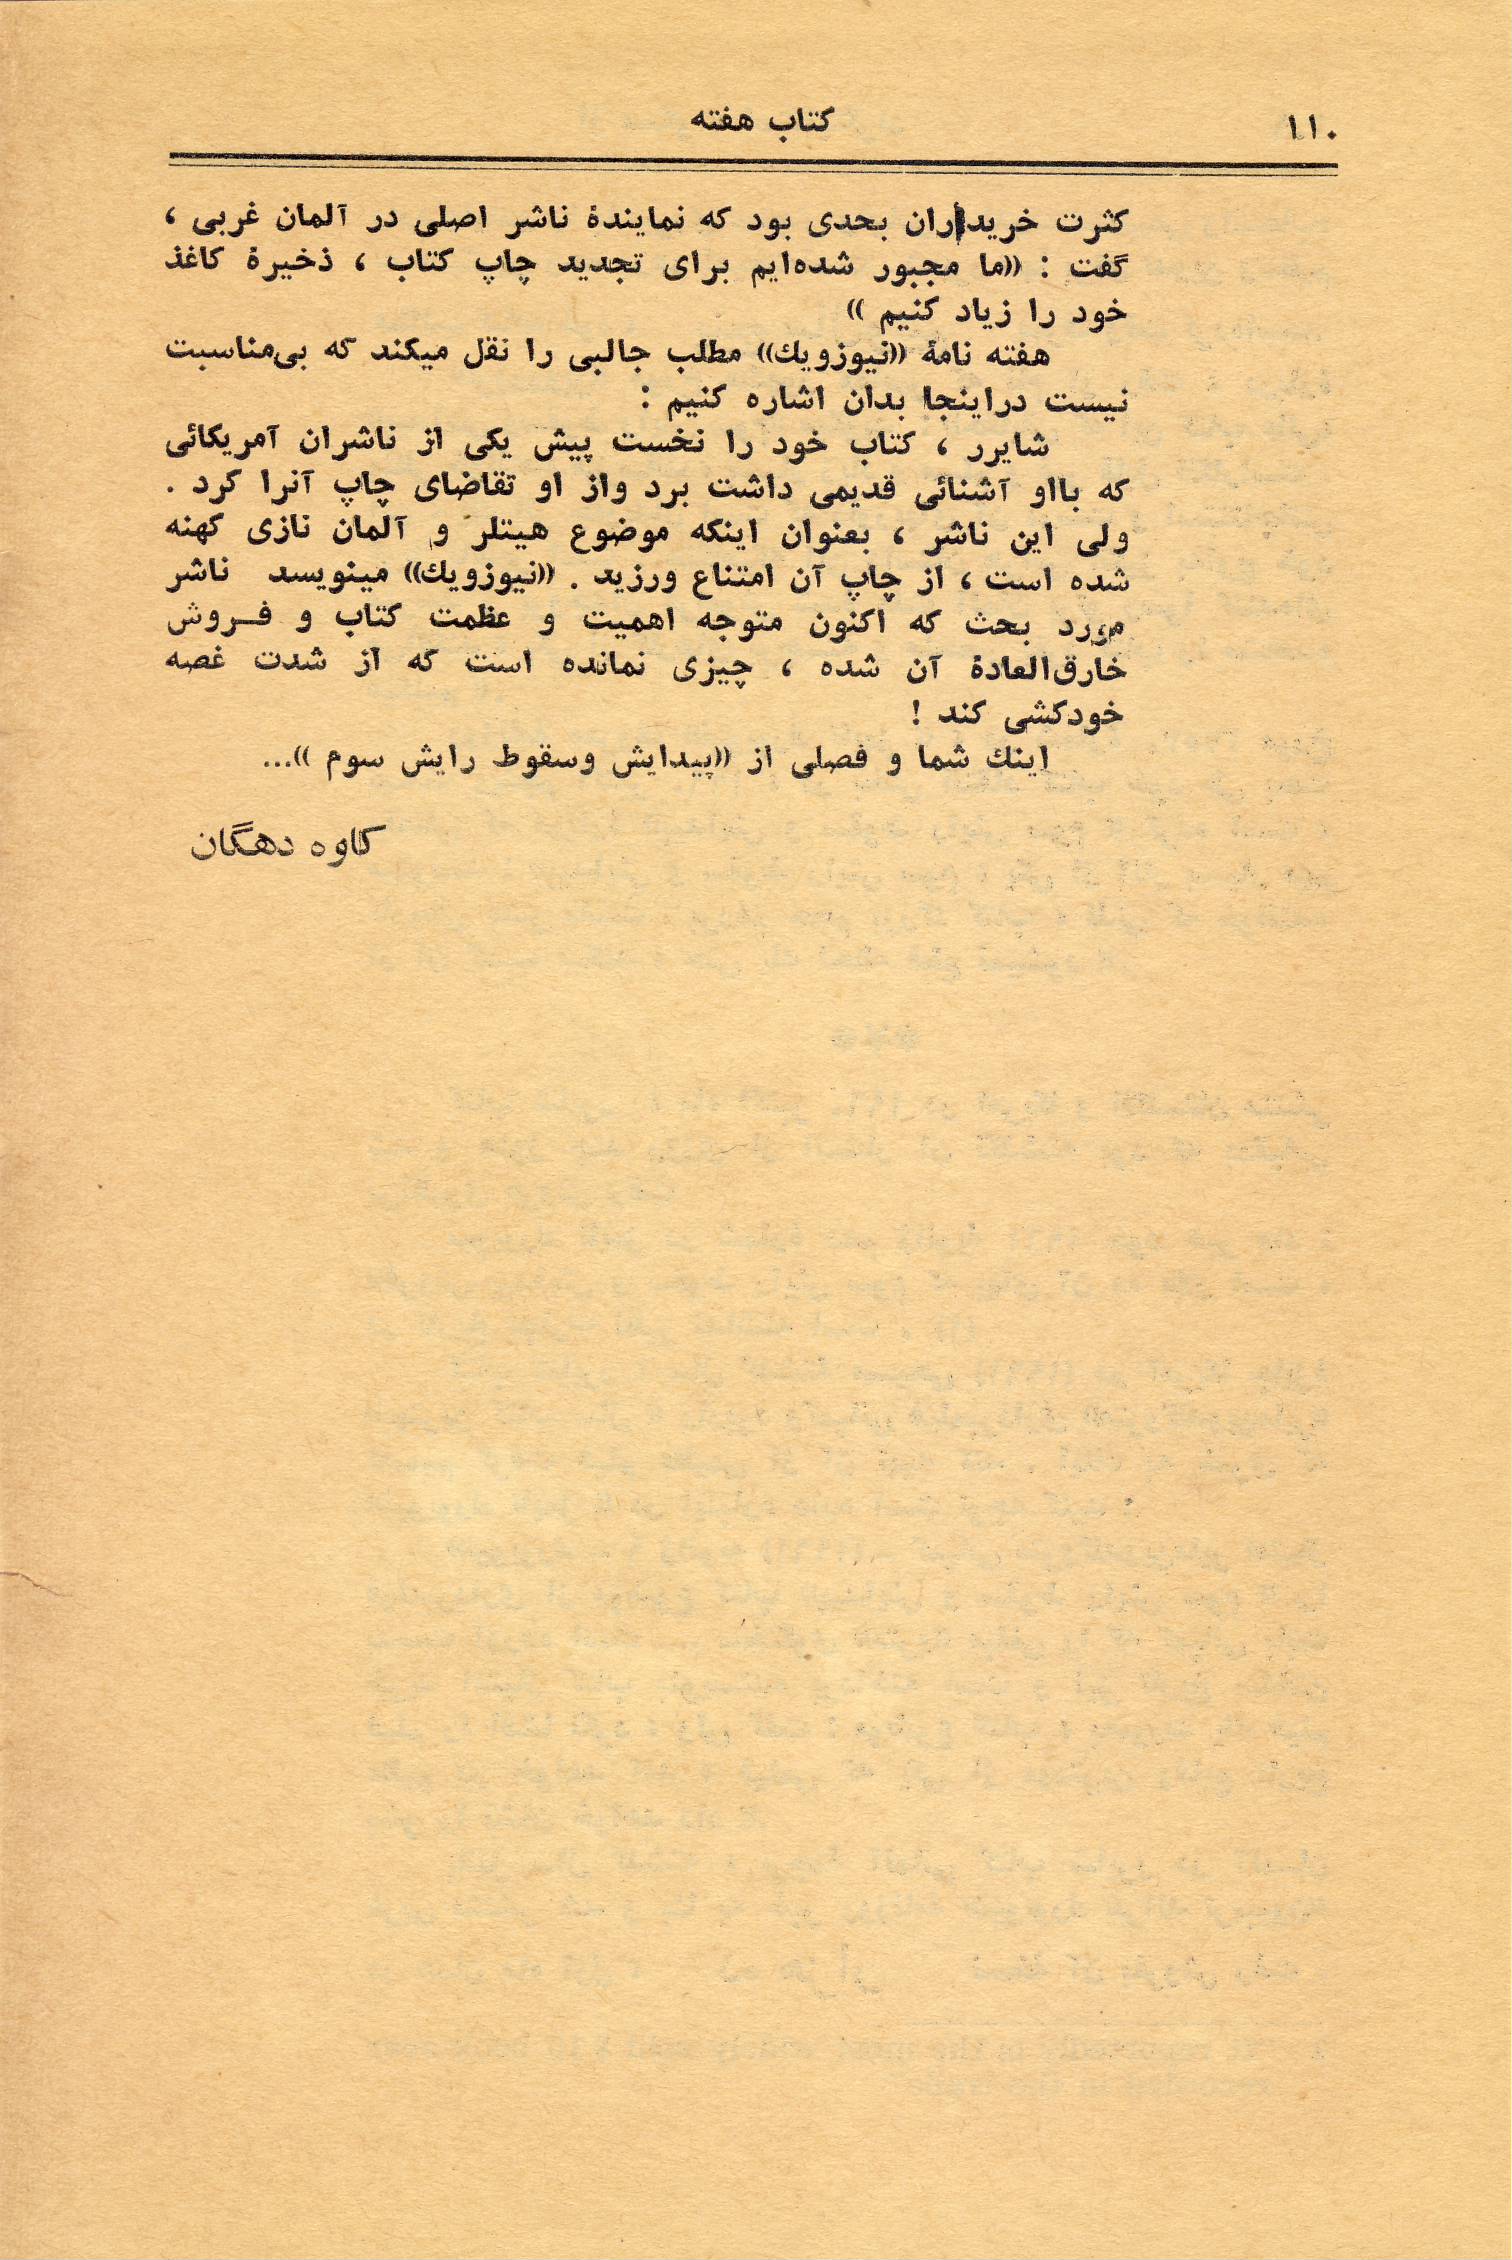 ۱۱۰
کتاب هفته
کثرت خریداران بحدی بود که نمایندهٔ ناشر اصلی در آلمان غربی ،
گفت : ((ما مجبور شده‌ایم برای تجدید چاپ کتاب ، ذخیرهٔ کاغذ
خود را زیاد کنیم ))
هفته نامهٔ ((نیوزویك)) مطلب جالبی را نقل میکند که بی‌مناسبت
نیست دراینجا بدان اشاره کنیم :
شایرر ، کتاب خود را نخست پیش یکی از ناشران آمریکائی
که بااو آشنائی قدیمی داشت برد واز او تقاضای چاپ آنرا کرد .
ولی این ناشر ، بعنوان اینکه موضوع هیتلر و آلمان نازی کهنه
شده است ، از چاپ آن امتناع ورزید . ((نیوزویك)) مینویسد ناشر
مورد بحث که اکنون متوجه اهمیت و عظمت کتاب و فـروش
خارق‌العادهٔ آن شده ، چیزی نمانده است که از شدت غصه
خودکشی کند !
اینك شما و فصلی از ((پیدایش وسقوط رایش سوم ))...
کاوه دهگان